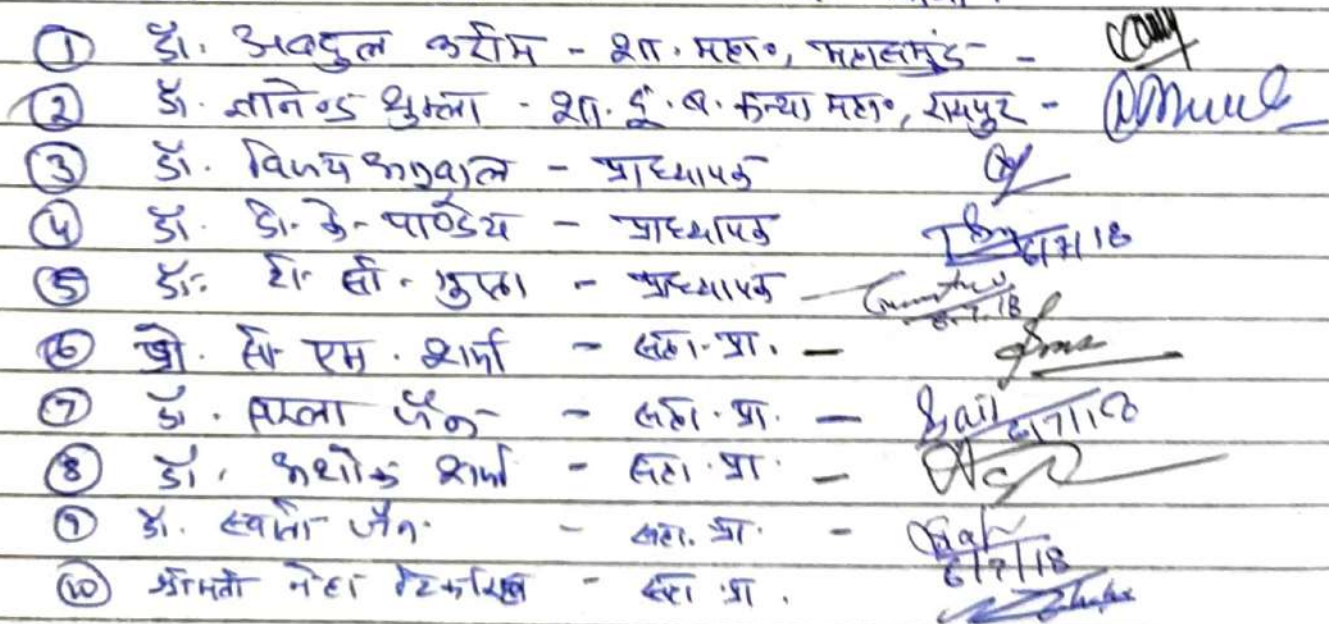 ① डॉ. अबदुल करीम - शा. महा०, महासमुंद -
② डॉ. ज्ञानेन्द्र शुक्ला - शा. दू. ब. कन्या महा०, रायपुर -
③ डॉ. विजय अग्रवाल - प्राध्यापक
④ डॉ. डी. के. पाण्डेय - प्राध्यापक 6/7/18
⑤ डॉ. सी. गुप्ता - प्राध्यापक - 6.7.18
⑥ प्रो. एम. शर्मा - सहा. प्रा. -
⑦ डॉ. जैन - सहा. प्रा. - 6/7/18
⑧ डॉ. अशोक शर्मा - सहा. प्रा. -
⑨ डॉ. स्वाति जैन - सहा. प्रा. - 6/7/18
⑩ श्रीमती नेहा - सहा. प्रा.